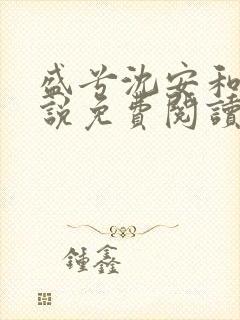 盛兮沈安和
說免費閱讀
鍾鑫